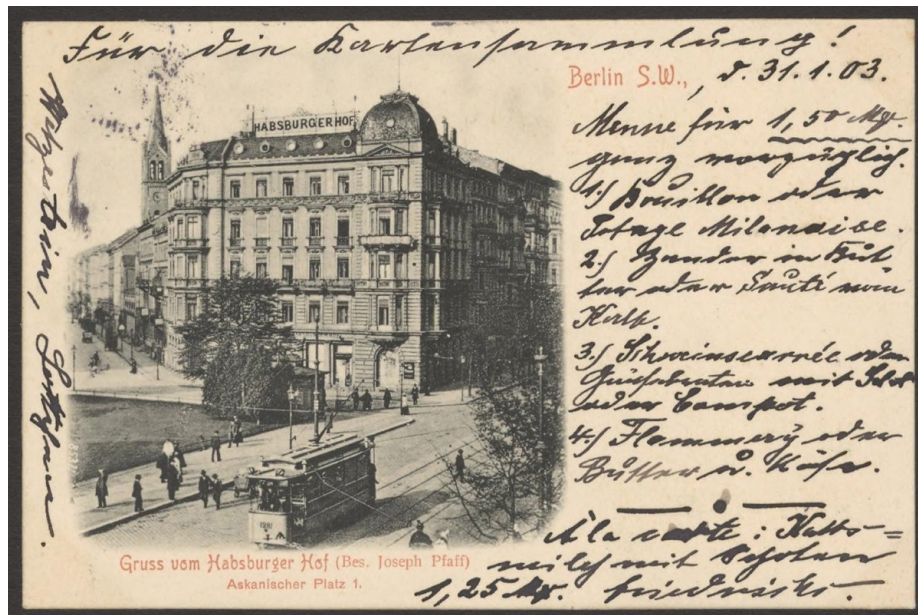 Für die Kartensammlung!
Berlin S.W., d. 31.1.03.
HABSBURGERHOF
Menue für 1,50 Mk.
ganz vorzüglich.
1.) Bouillon oder
Potage Milanaise.
2.) Zander in But
ter oder Sauté vom
Kalb.
3.) Schweinscarrée oder
mit Salat
oder Compot.
4.) Flammery oder
Butter u. Käse.
A la carte: Kalbs=
milch mit Schoten
1,25 Mk.
Gruss vom Habsburger Hof (Bes. Joseph Pfaff)
Askanischer Platz 1.